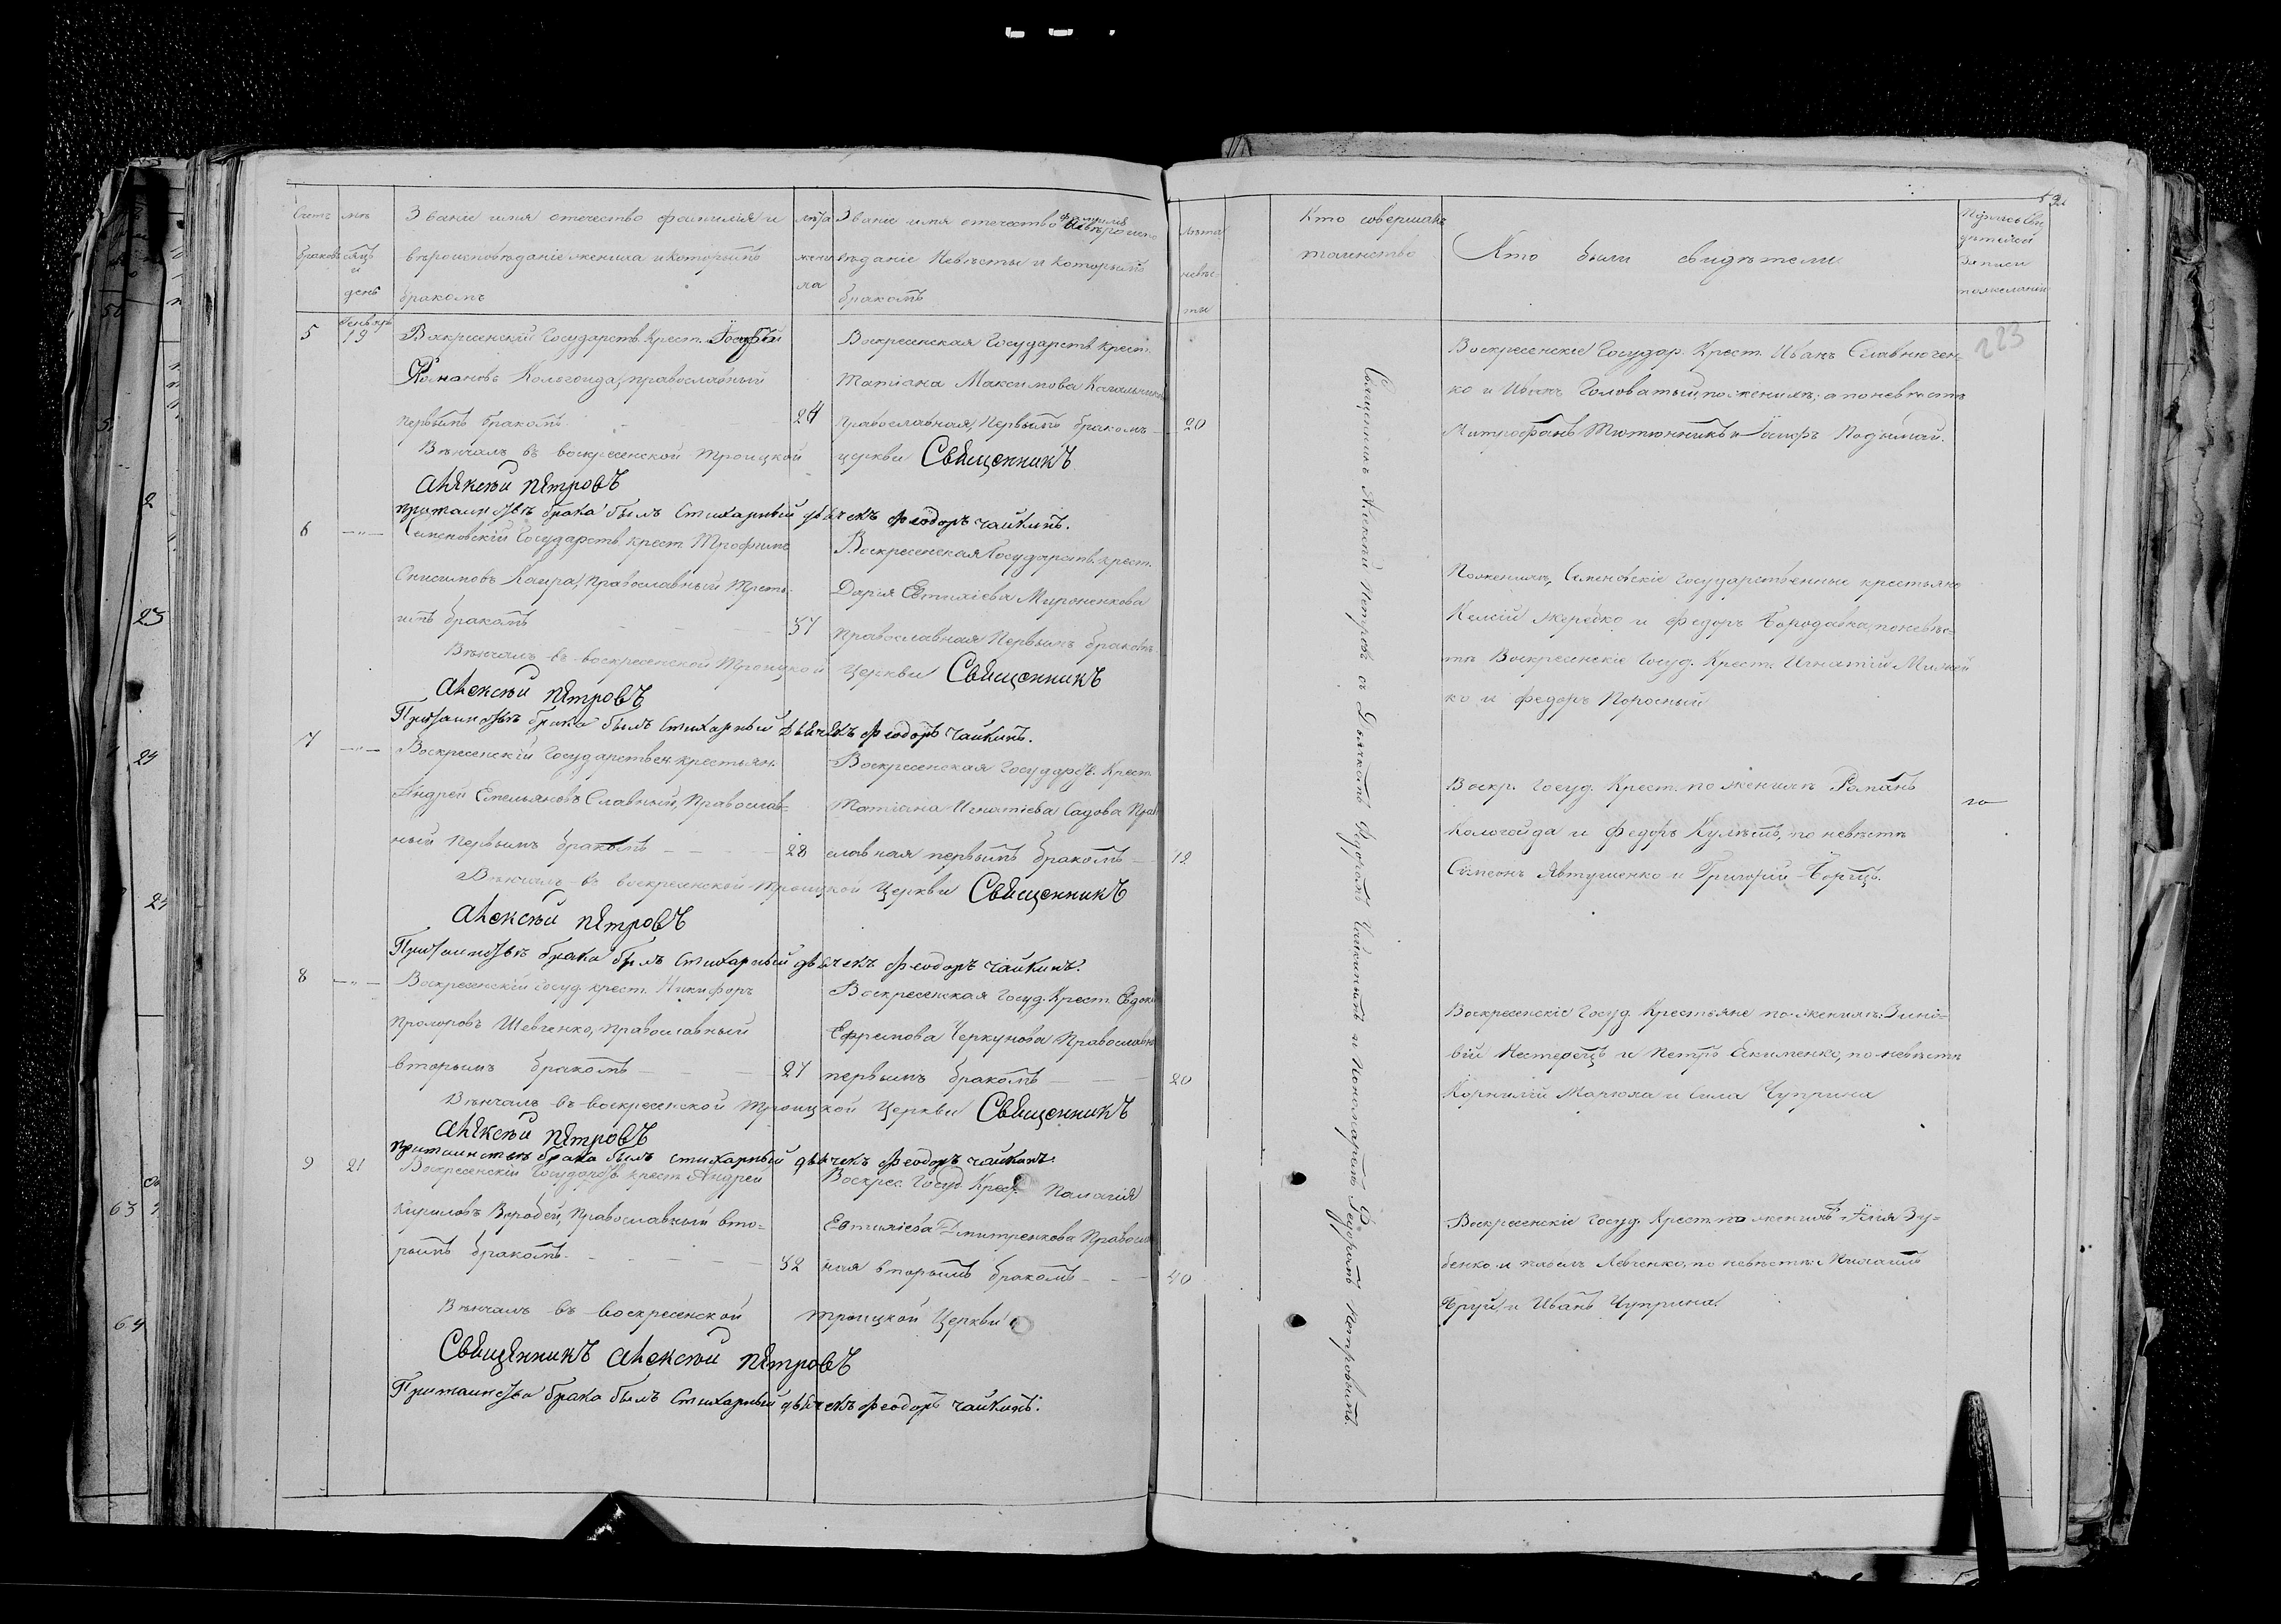 Счетъ браковъ
мѣсяцъ и день
Званіе имя отечество фамилія и
вѣроисповѣданіе жениха и которымъ
бракомъ
лѣта жениха
Званіе имя отечество фамилія и вѣроиспо
вѣданіе Невѣсты и которымъ
бракомъ
лѣта
невѣс-
ты
Кто совершалъ
таинство
Кто были свидѣтели
Подпись сви
дѣтелей
записи
по желанію
223
5
Генваря
19
Воскресенскій Государств. Крест.
Романовъ Кологойда, православный
первымъ бракомъ
24
Воскресенская Государств. Крест.
Татіана Максимова
православная, Первымъ бракомъ
20
Воскресенскіе Государ. Крест. Иванъ Славнючен-
ко и Иванъ Головатый, по женихѣ; а по невѣстѣ
Митрофанъ Тютюнникъ и
Вѣнчалъ въ воскресенской троицкой церкви Священникъ
Алексѣй Петровъ
При таинствѣ брака былъ Стихарный дьячекъ Феодоръ Чайкинъ.
6
—"—
Семеновскій Государств. крест. Трофимъ
Онисимовъ Каира, Православный Треть-
имъ бракомъ
37
Воскресенская Государств. крест.
Дарія Евтихіева Мироненкова
Православная Первымъ бракомъ
По женихѣ, Семеновскіе государственные крестьяне
Жеребко и Федоръ Бородавка, по невѣс-
тѣ Воскресенскіе Госуд. Крест. Игнатій
ко и Федоръ Поросный
Вѣнчалъ въ воскресенской Троицкой Церкви Священникъ
Алексѣй Петровъ
При таинствѣ брака былъ Стихарный Дьячекъ Феодоръ Чайкинъ.
7
—"—
Воскресенскій Государствен. крестьян.
Андрей Емельяновъ Славный, Православ-
ный Первымъ бракомъ
28
Воскресенская Государств. Крест.
Татіана Игнатіева Садова Право
славная первымъ бракомъ
Воскр. Госуд. Крест. по женихѣ Романъ
Кологойда и Федоръ Кулѣшъ, по невѣстѣ
Симеонъ Явтушенко и Григорій
Вѣнчалъ въ воскресенской троицкой Церкви Священникъ
Алексѣй Петровъ
При таинствѣ брака былъ Стихарный дьячекъ Феодоръ Чайкинъ.
8
—"—
Воскресенскій Госуд. крест. Никифоръ
Прохоровъ Шевченко, Православный
вторымъ бракомъ
27
Воскресенская Госуд. Крест.
Ефремова Черкунова Православн
первымъ бракомъ
20
Воскресенскіе Госуд. Крестьяне по женихѣ: Зино-
вій Нестерецъ и Петръ Якименко, по невѣстѣ
Корнилій Марюха и Сила Чуприна
Вѣнчалъ въ воскресенской троицкой Церкви Священникъ
Алексѣй Петровъ
При таинствѣ брака былъ стихарный дьячекъ Феодоръ Чайкинъ.
9
21
Воскресенскій Государств. крест. Андрей
Кириловъ Воробей, Православный вто-
рымъ бракомъ
Воскрес. Госуд. Крест. Палагія
Евтихіева Дмитренкова Правосл
ная вторымъ бракомъ
40
Воскресенскіе Госуд. Крест. по женихѣ Илія Зу-
бенко и Павелъ Левченко, по невѣстѣ:
и Иванъ Чуприна.
Вѣнчалъ въ воскресенской троицкой Церкви
Священникъ Алексѣй Петровъ
При таинствѣ брака былъ Стихарный дьячекъ Феодоръ Чайкинъ.
Священникъ Алексѣй Петровъ съ Дьячкомъ Федоромъ Чайкинымъ и Пономаремъ Федоромъ Петровымъ.